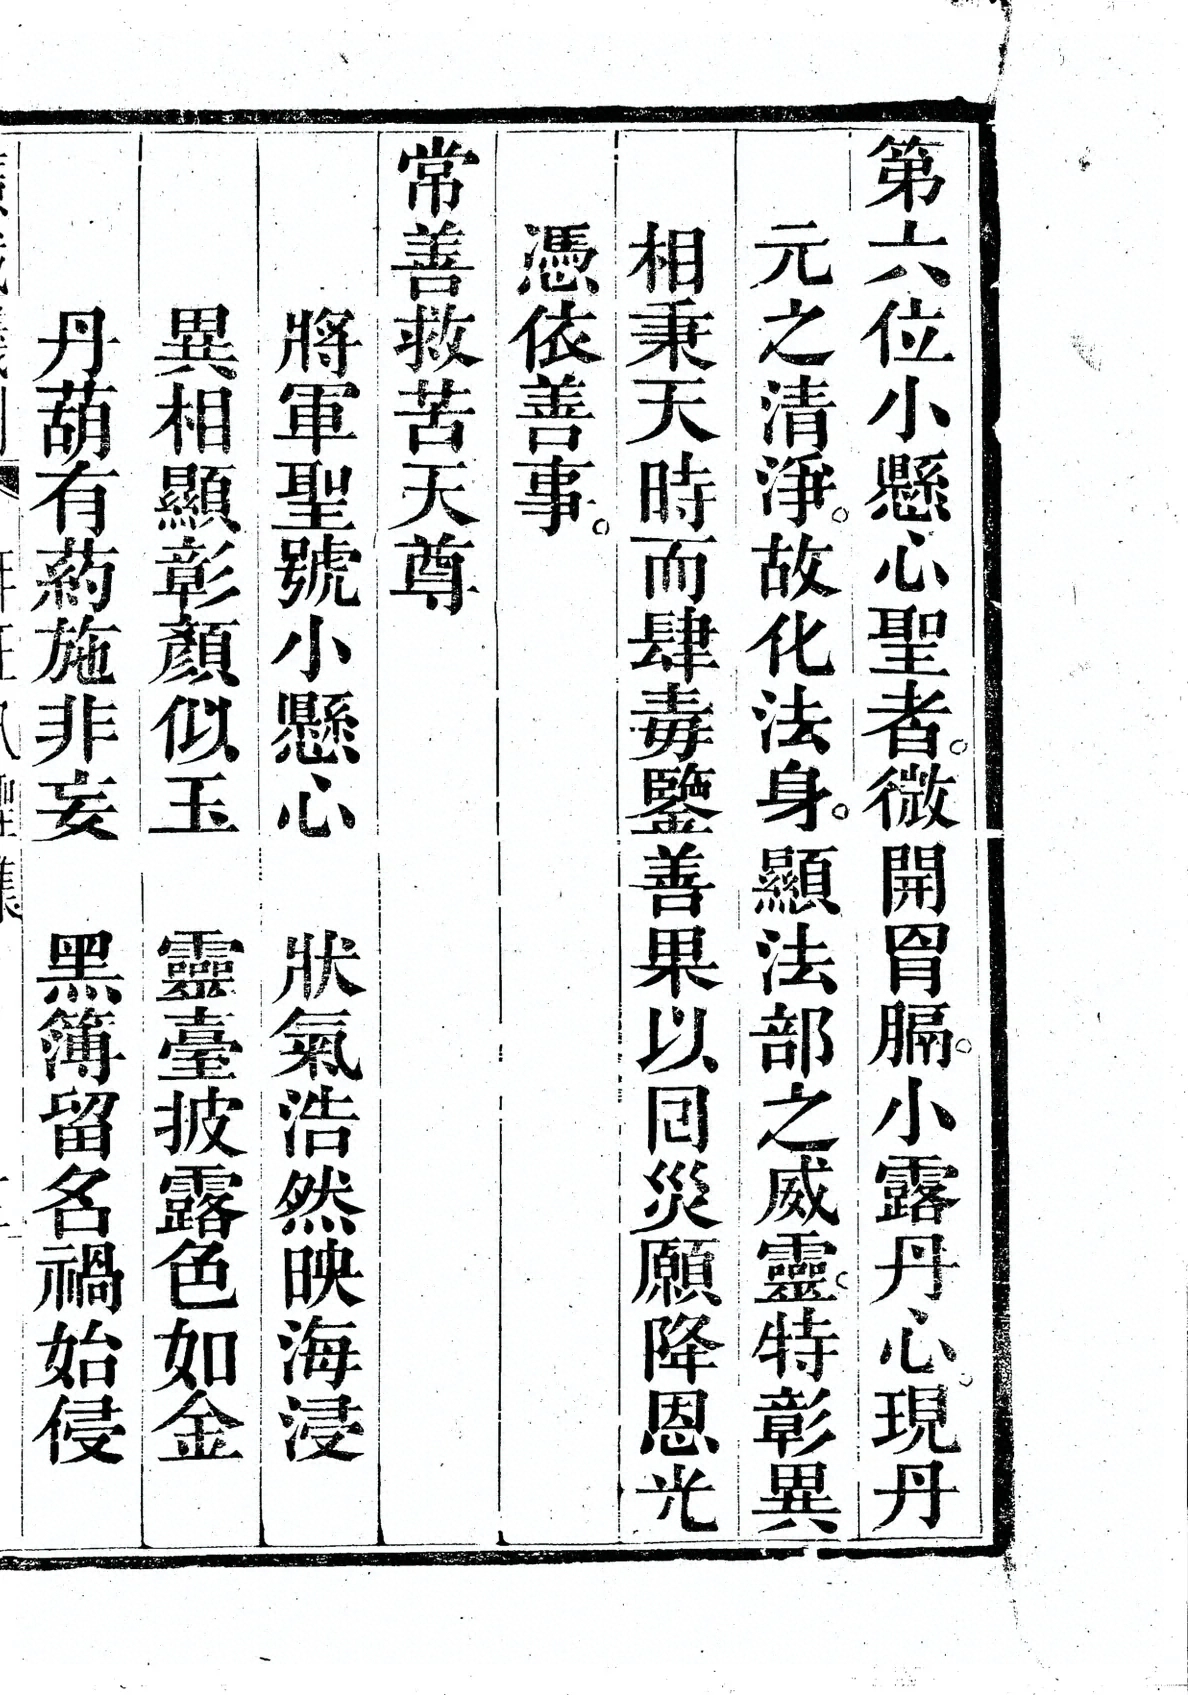 第六位小懸心聖者。微開胷膈。小露丹心。現丹
元之清淨。故化法身。顯法部之威靈。特彰異
相秉天時而肆毒鑒善果以囘災願降恩光
憑依善事。
常善救苦天尊
將軍聖號小懸心　狀氣浩然映海浸
異相顯彰顏似玉　靈臺披露色如金
丹葫有葯施非妄　黑簿留名禍始侵